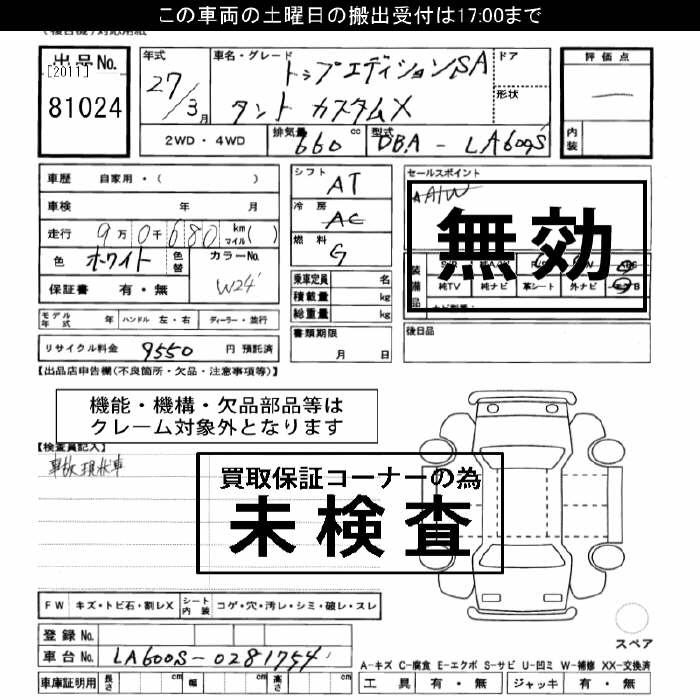 この車両の土曜日の搬出受付は17:00まで
出品No.
[2011]
81024
年式
27/3月
車名・グレード
トップエディションSA
タント カスタムX
ドア
形状
評価点
内装
2WD・4WD
排気量 660 cc
型式 DBA-LA600S
車歴 自家用・( )
車検 年 月
走行 9万0千680 km マイル( )
色 ホワイト 色替
カラーNo. W24
保証書 有・無
シフト AT
冷房 AC
燃料 G
乗車定員 名
積載量 kg
総重量 kg
セールスポイント
A/W
無効
装備品
純TV 純ナビ 革シート 外ナビ
モデル年式 年 ハンドル 左・右 ディーラー・並行
リサイクル料金 9550 円 預託済
書類期限
月 日
後日品
【出品店申告欄(不良箇所・欠品・注意事項等)】
機能・機構・欠品部品等は
クレーム対象外となります
【検査員記入】
事故現状車
買取保証コーナーの為
未検査
FW キズ・トビ石・割レX シート内装 コゲ・穴・汚レ・シミ・破レ・スレ
登録No.
車台No. LA600S-0281754
車庫証明用 長さ cm 幅 cm 高さ cm
スペア
A-キズ C-腐食 E-エクボ S-サビ U-凹ミ W-補修 XX-交換済
工具 有・無 ジャッキ 有・無